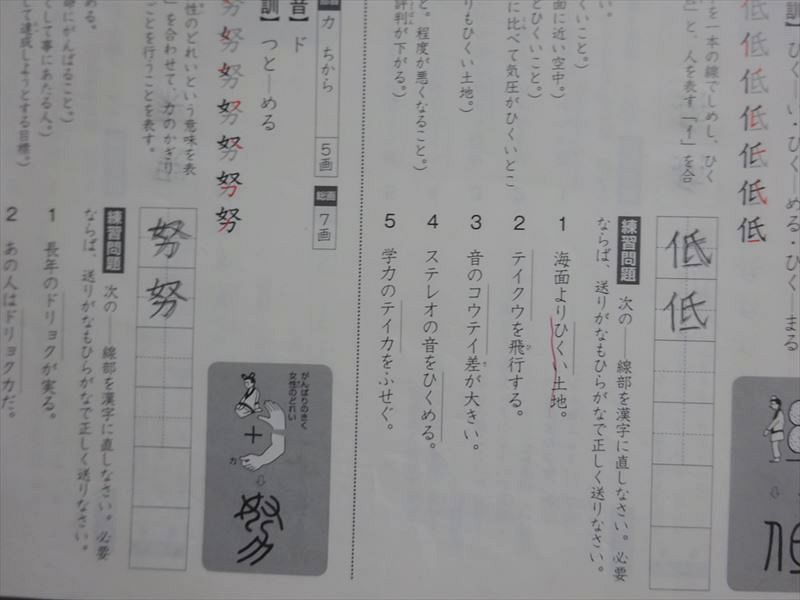 訓】ひく―い・ひく―める・ひく―まる
低
低
低
低
低
低
を一本の線でしめし、ひく
」と、人を表す「亻」を合
低
低
練習問題 次の――線部を漢字に直しなさい。必要
ならば、送りがなもひらがなで正しく送りなさい。
1 海面よりひくい土地。
2 テイクウを飛行する。
3 音のコウテイ差が大きい。
4 ステレオの音をひくめる。
5 学力のテイカをふせぐ。
くいこと。）
面に近い空中。）
とひくいこと。）
に比べて気圧がひくいとこ
りもひくい土地。）
と。程度が悪くなること。）
評判が下がる。）
力 ちから
5画
総画
7画
音】ド
訓】つと―める
努
努
努
努
努
努
努
性のどれいという意味を表
」を合わせて、力のかぎり
ごとを行うことを表す。
努
努
がんばりのきく
女性のどれい
＋
力
練習問題 次の――線部を漢字に直しなさい。必要
ならば、送りがなもひらがなで正しく送りなさい。
1 長年のドリョクが実る。
2 あの人はドリョクカだ。
める。
命にがんばること。）
して事にあたる人。）
して達成しようとする目標。）